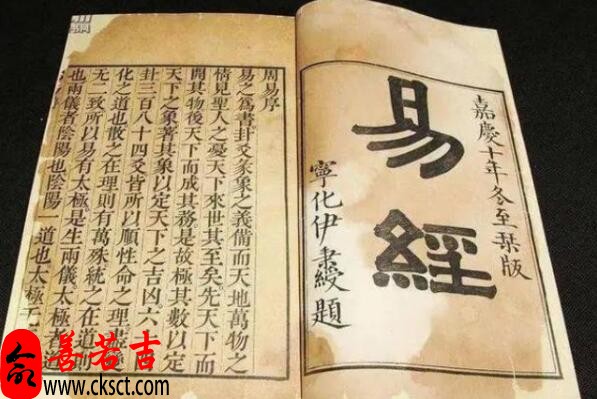 嘉慶十年冬至栞版
易經
寧化伊秉綬題
周易序
易之為書卦爻彖象之義備而天地萬物之
情見聖人之憂天下來世其至矣先天下而
開其物後天下而成其務是故極其數以定
天下之象著其象以定天下之吉凶六
卦三百八十四爻皆所以順性命之理盡
化之道也散之在理則有萬殊統之在道則
无二致所以易有太極是生兩儀太極者道
也兩儀者陰陽也陰陽一道也太極无
善若吉
www.cksct.com